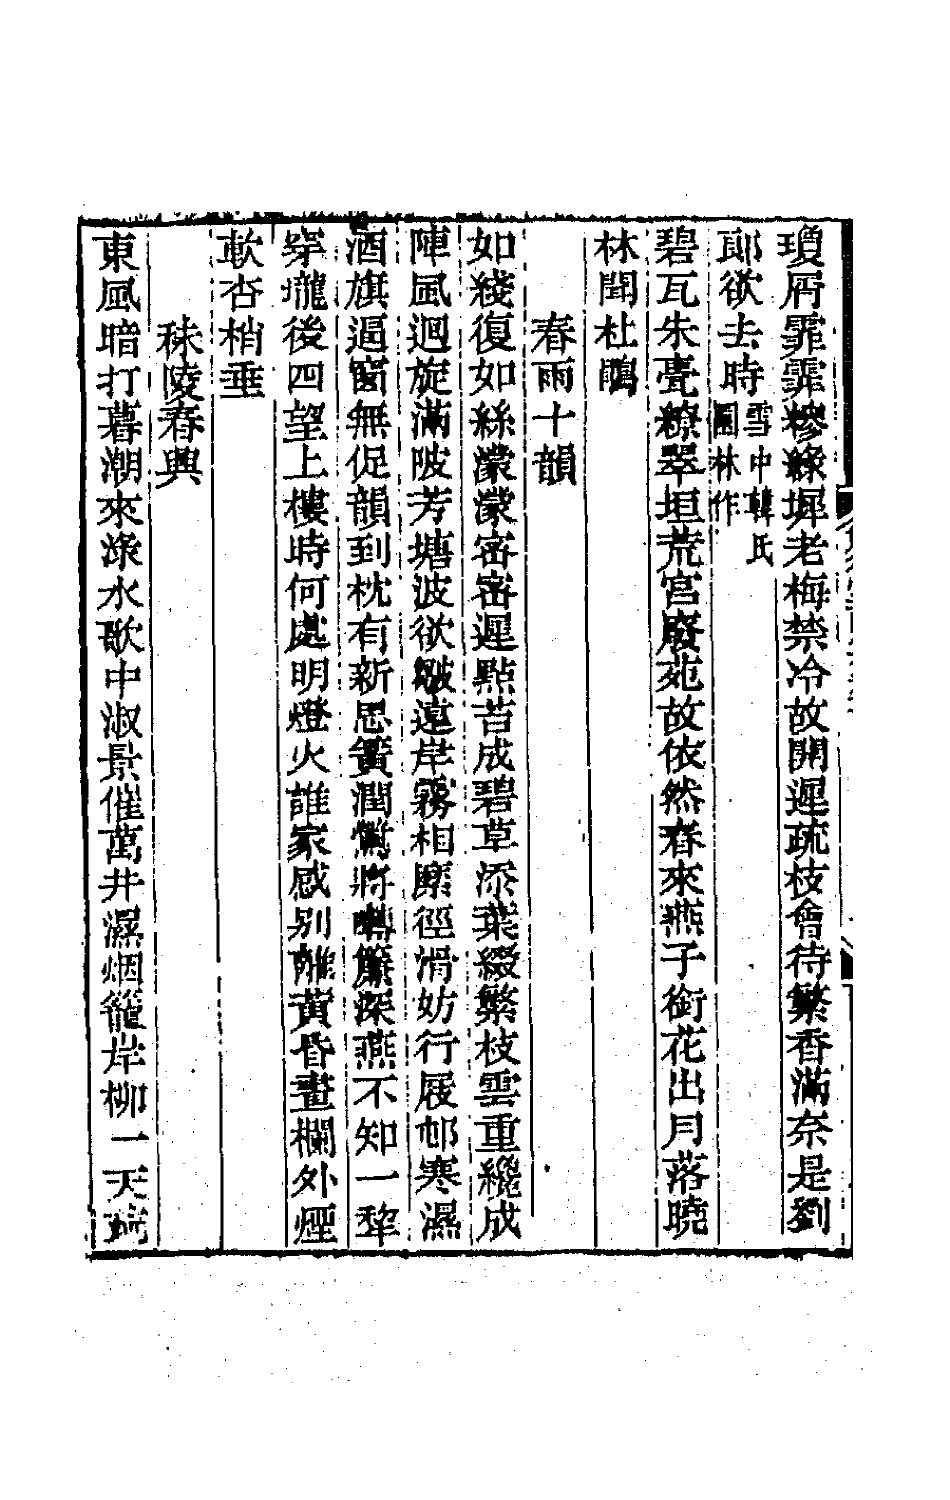 瓊屑霏霏糝綠墀老梅禁冷故開遲疏枝會待繁香滿奈是劉
郎欲去時雪中韓氏園林作
碧瓦朱甍繚翠垣荒宮廢苑故依然春來燕子銜花出月落曉
林聞杜鵑
春雨十韻
如綫復如絲濛濛密密遲點苔成碧草添葉綴繁枝雲重纔成
陣風迴旋滿陂芳塘波欲皺遠岸霧相磨徑滑妨行屐邨寒濕
酒旗逼窗無促韻到枕有新思簧潤鶯將囀簾深燕不知一犂
穿壠後四望上樓時何處明燈火誰家感别離黃昏畫欄外煙
軟杏梢垂
秣陵春興
東風暗打暮潮來淥水歌中淑景催萬井濕烟籠岸柳一天